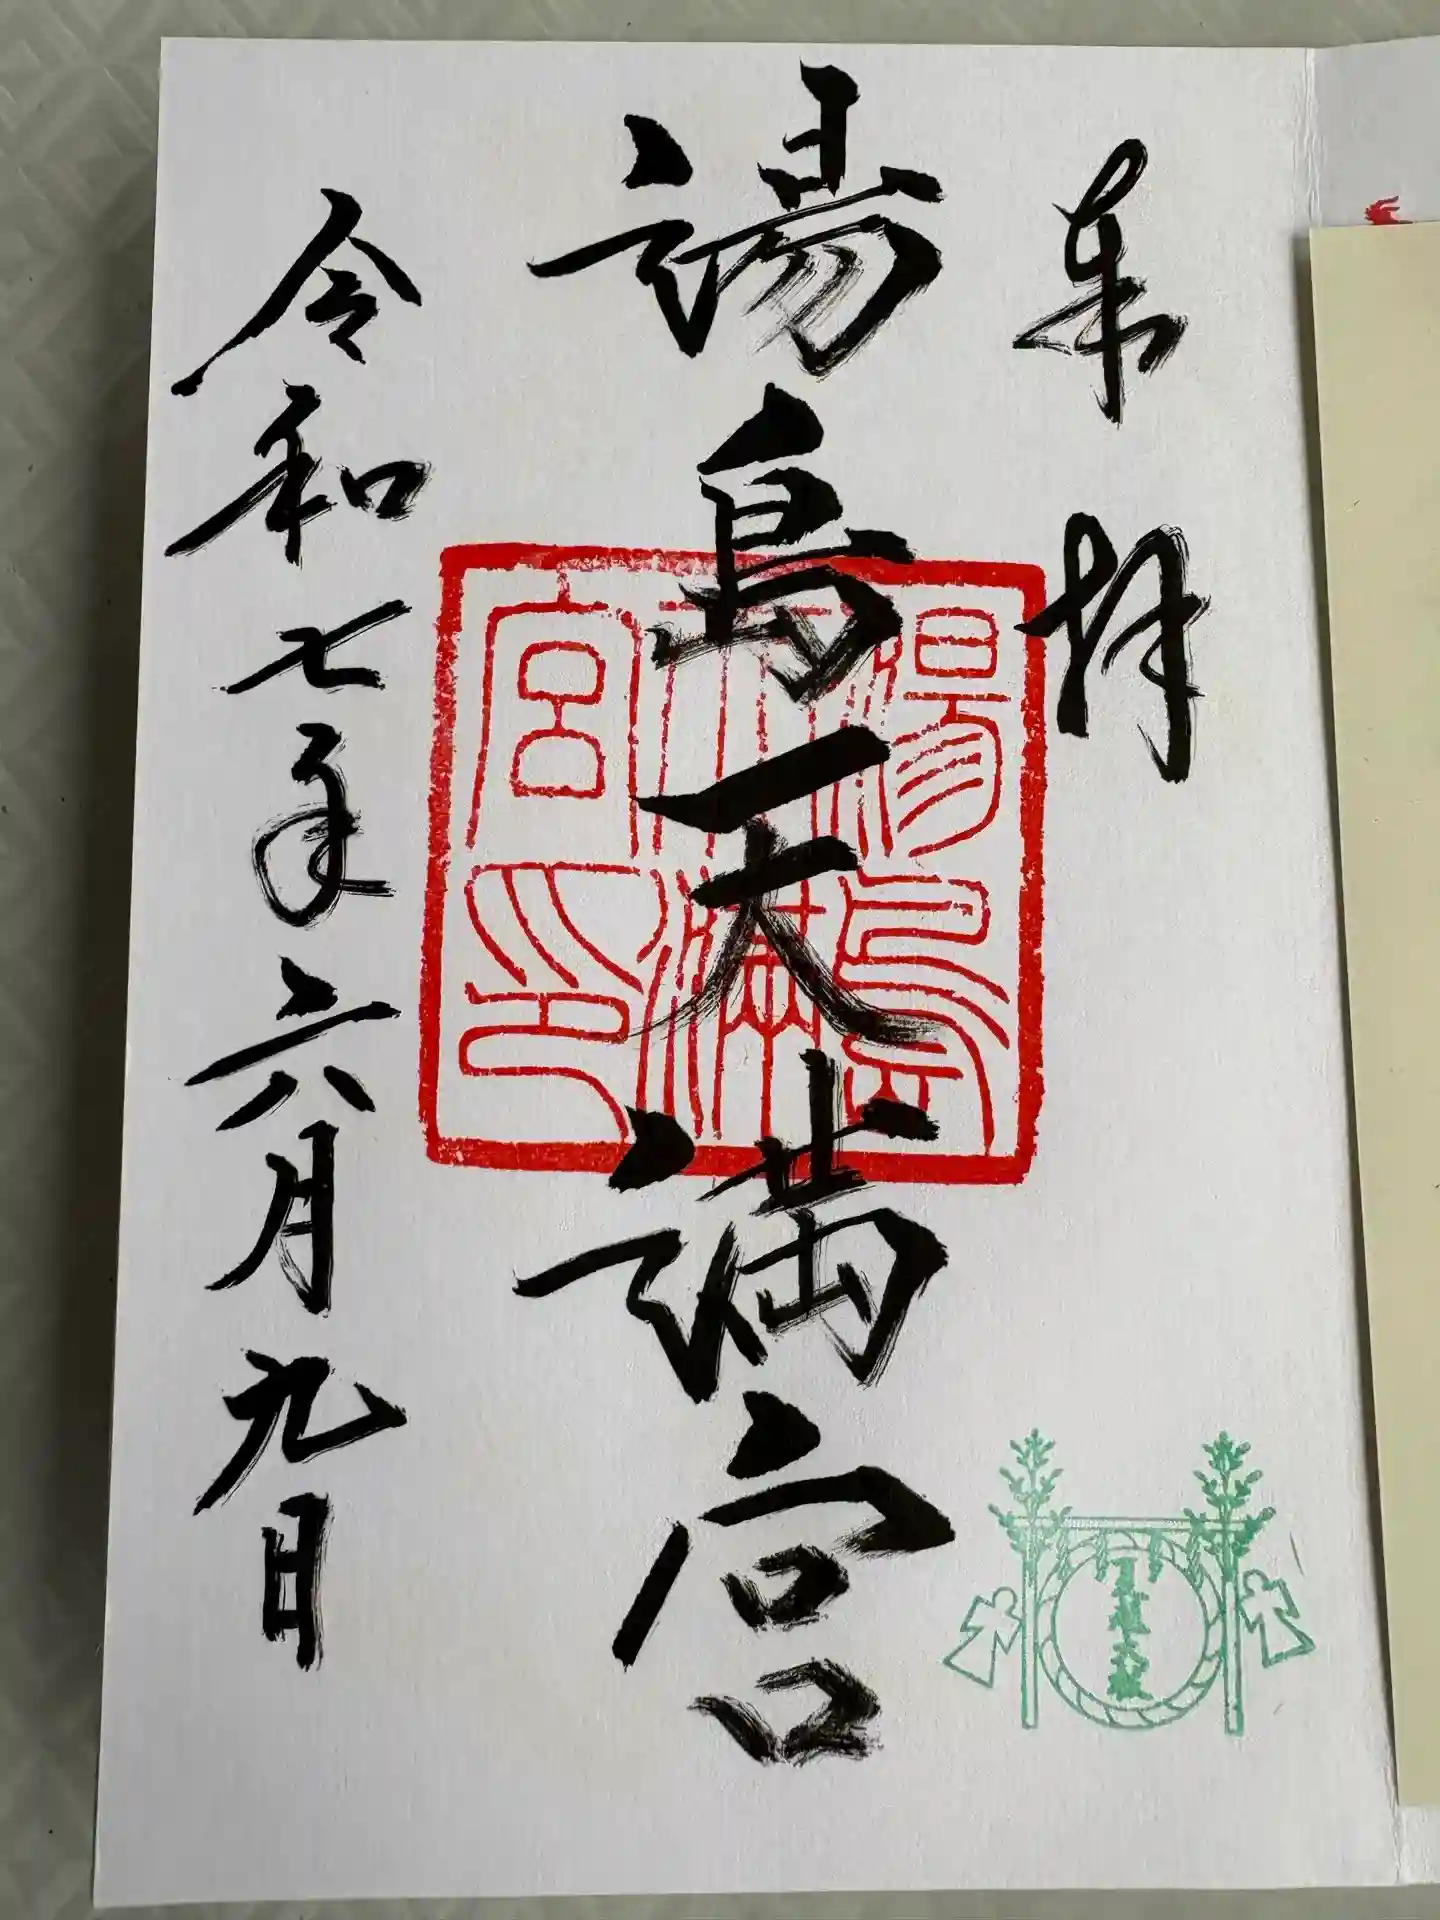 奉拝
湯島天満宮
湯島天満宮印
令和七年六月九日
夏越大祓